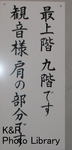 最上階 九階です
観音様 肩の部分です
K&K
Photo Library